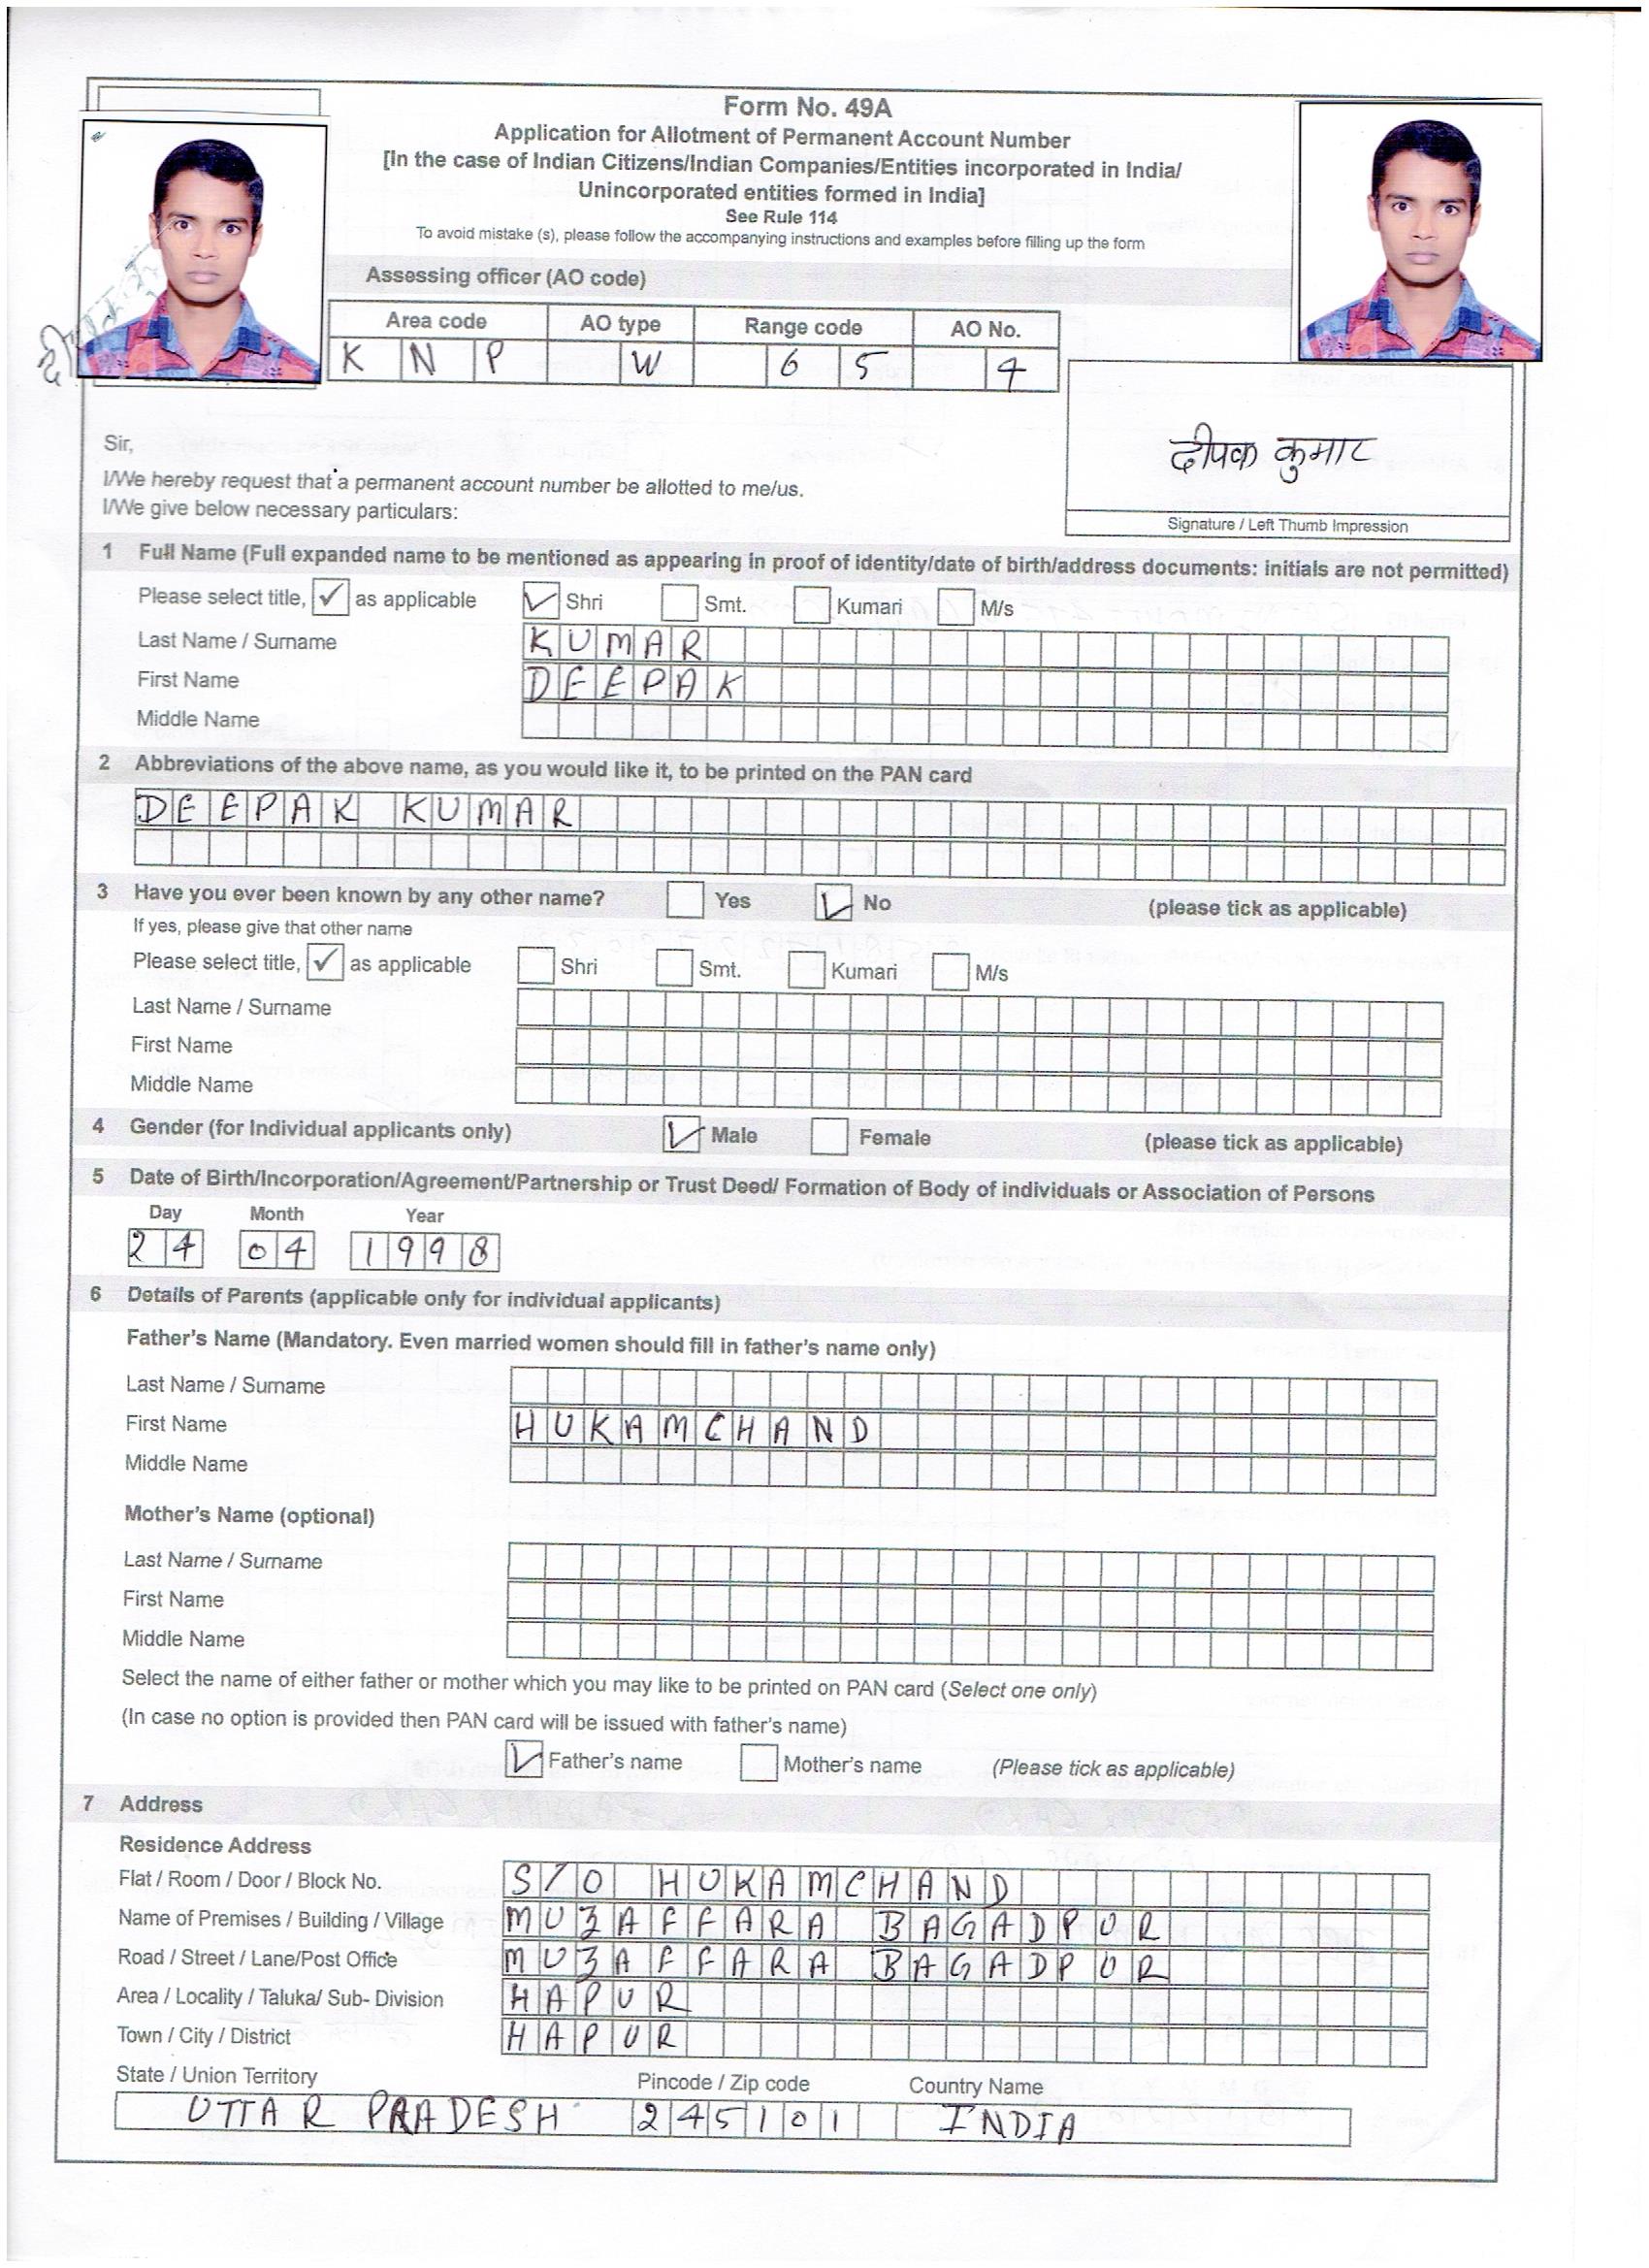 Form No. 49A
Application for Allotment of Permanent Account Number
[In the case of Indian Citizens/Indian Companies/Entities incorporated in India/
Unincorporated entities formed in India]
See Rule 114
To avoid mistake (s), please follow the accompanying instructions and examples before filling up the form
Assessing officer (AO code)
Area code AO type Range code AO No.
KNP W 65 4
दीपक कुमार
Signature / Left Thumb Impression
Sir,
I/We hereby request that a permanent account number be allotted to me/us.
I/We give below necessary particulars:
1 Full Name (Full expanded name to be mentioned as appearing in proof of identity/date of birth/address documents: initials are not permitted)
Please select title, ✓ as applicable ✓ Shri Smt. Kumari M/s
Last Name / Surname KUMAR
First Name DEEPAK
Middle Name
2 Abbreviations of the above name, as you would like it, to be printed on the PAN card
DEEPAK KUMAR
3 Have you ever been known by any other name? Yes ✓ No (please tick as applicable)
If yes, please give that other name
Please select title, ✓ as applicable Shri Smt. Kumari M/s
Last Name / Surname
First Name
Middle Name
4 Gender (for Individual applicants only) ✓ Male Female (please tick as applicable)
5 Date of Birth/Incorporation/Agreement/Partnership or Trust Deed/ Formation of Body of individuals or Association of Persons
Day Month Year
24 04 1998
6 Details of Parents (applicable only for individual applicants)
Father's Name (Mandatory. Even married women should fill in father's name only)
Last Name / Surname
First Name HUKAMCHAND
Middle Name
Mother's Name (optional)
Last Name / Surname
First Name
Middle Name
Select the name of either father or mother which you may like to be printed on PAN card (Select one only)
(In case no option is provided then PAN card will be issued with father's name)
✓ Father's name Mother's name (Please tick as applicable)
7 Address
Residence Address
Flat / Room / Door / Block No. S/O HUKAMCHAND
Name of Premises / Building / Village MUZAFFARA BAGADPUR
Road / Street / Lane/Post Office MUZAFFARA BAGADPUR
Area / Locality / Taluka/ Sub- Division HAPUR
Town / City / District HAPUR
State / Union Territory Pincode / Zip code Country Name
UTTAR PRADESH 245101 INDIA